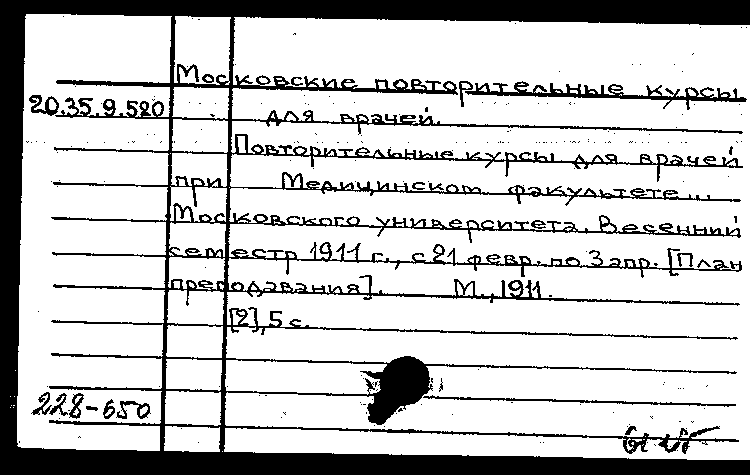 Московские повторительные курсы
20.35.9.520 для врачей.
Повторительные курсы для врачей
при Медицинском факультете...
Московского университета. Весенний
семестр 1911 г., с 21 февр. по 3 апр. [План
преподавания]. М., 1911.
[2], 5 с.
228-650